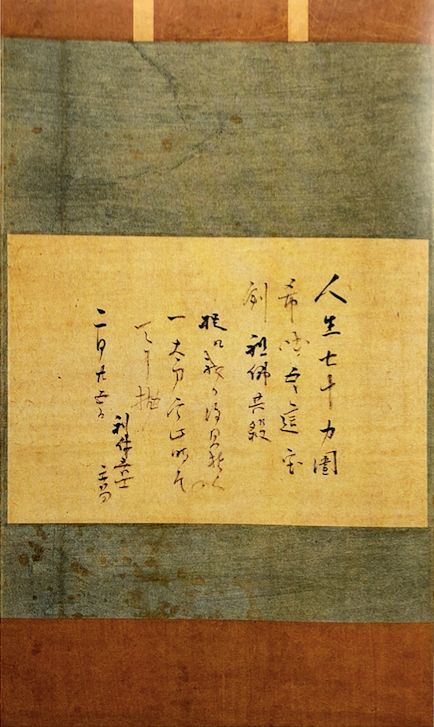 人生七十力圍
希咄吾這宝
剣祖佛共殺
提ル我得具足の
一太刀今此時そ
天に抛
二月廿五日
利休居士
宗易